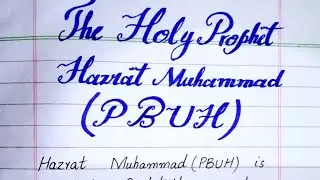 The Holy Prophet
Hazrat Muhammad
(PBUH)
Hazrat Muhammad (PBUH) is